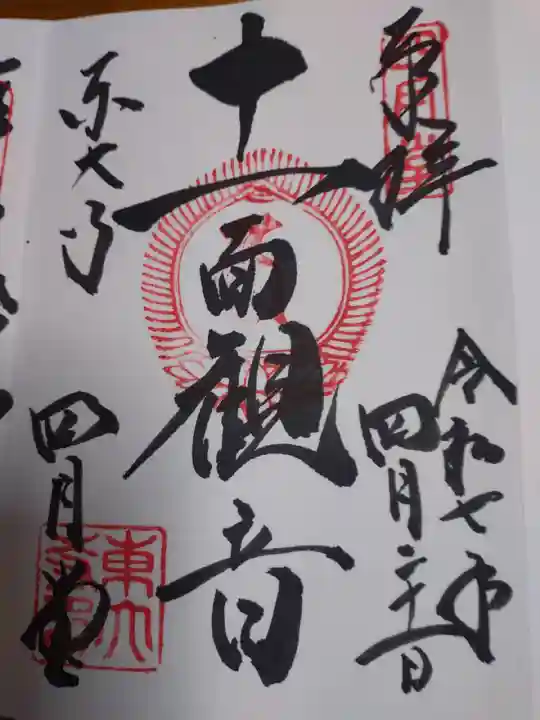 奉拝
令和七年
四月二十一日
十一面観音
東大寺
四月堂